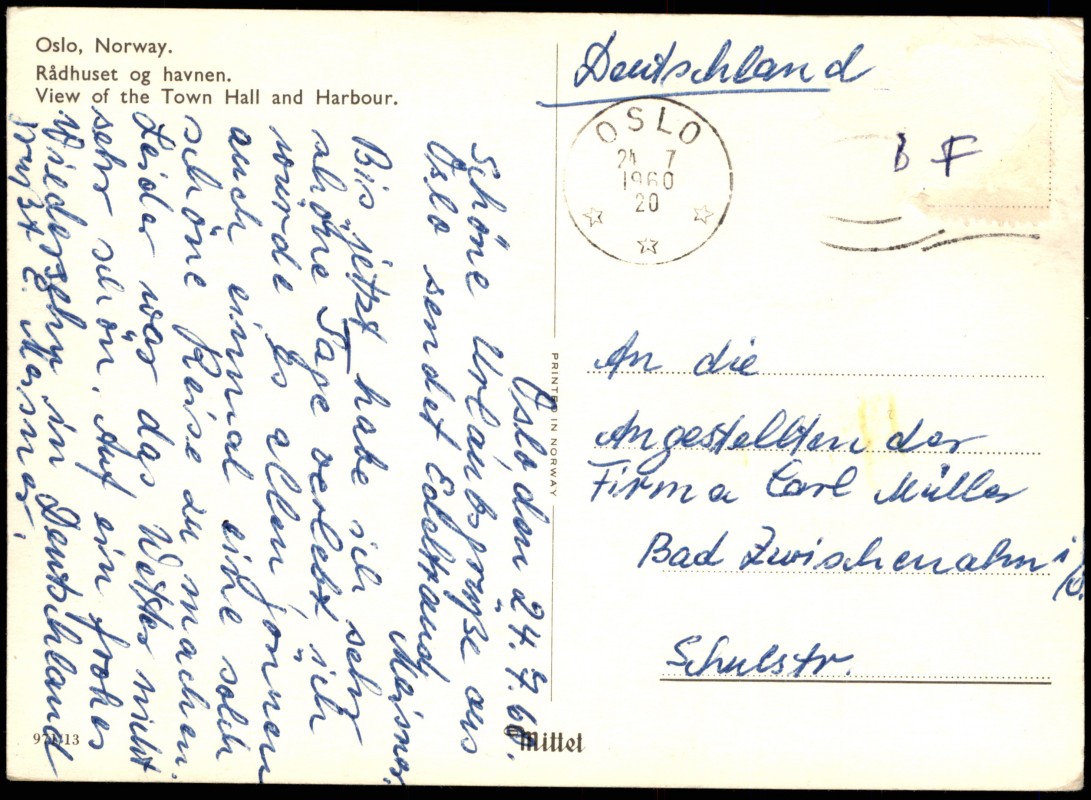 Oslo, Norway.
Rådhuset og havnen.
View of the Town Hall and Harbour.
Oslo, den 24.7.60.
Schöne Urlaubsgrüße aus
Oslo sendet Edeltraud
Meisner
Bis jetzt habe ich sehr
schöne Tage verlebt ich
würde es allen gönnen
auch einmal eine solch
schöne Reise zu machen.
Leider war das Wetter nicht
sehr schön. Auf ein frohes
Wiedersehn in Deutschland
grüßt E. Meisner.
971-13
Mittet
PRINTED IN NORWAY
Deutschland
OSLO
24 7
1960
20
F
An die
Angestellten der
Firma Carl Müller
Bad Zwischenahn i/O.
Schulstr.